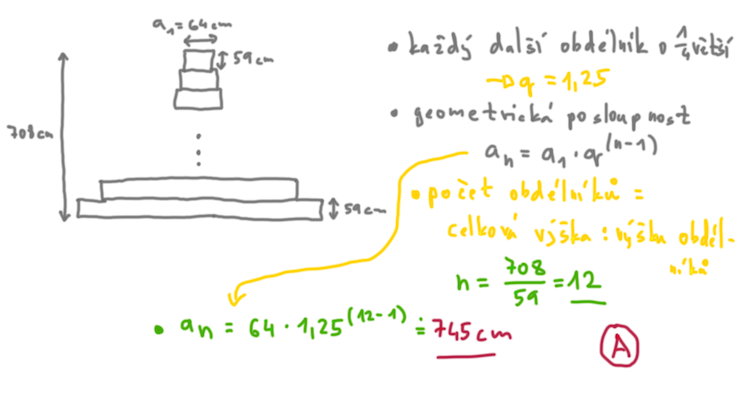 a₁=64cm
59cm
708cm
59cm
• každý další obdélník o 1/4 větší
→ q = 1,25
• geometrická posloupnost
aₙ = a₁ · q^(n-1)
• počet obdélníků =
celková výška : výšku obdél-
níků
n = 708/59 = 12
• aₙ = 64 · 1,25^(12-1) ≐ 745cm
A